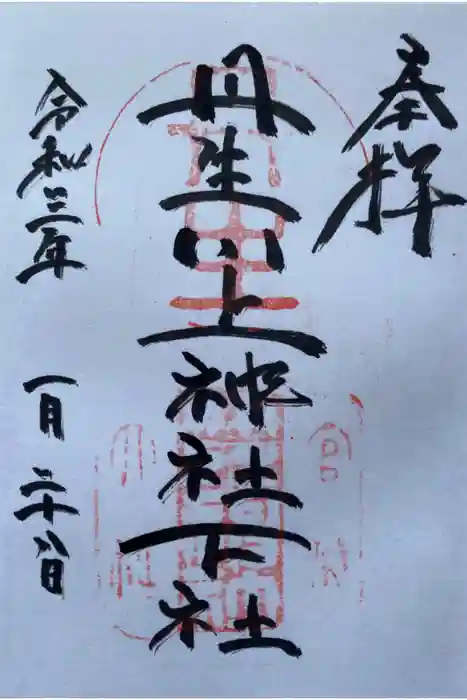 奉拝
丹生川上神社下社
令和三年
一月二十八日